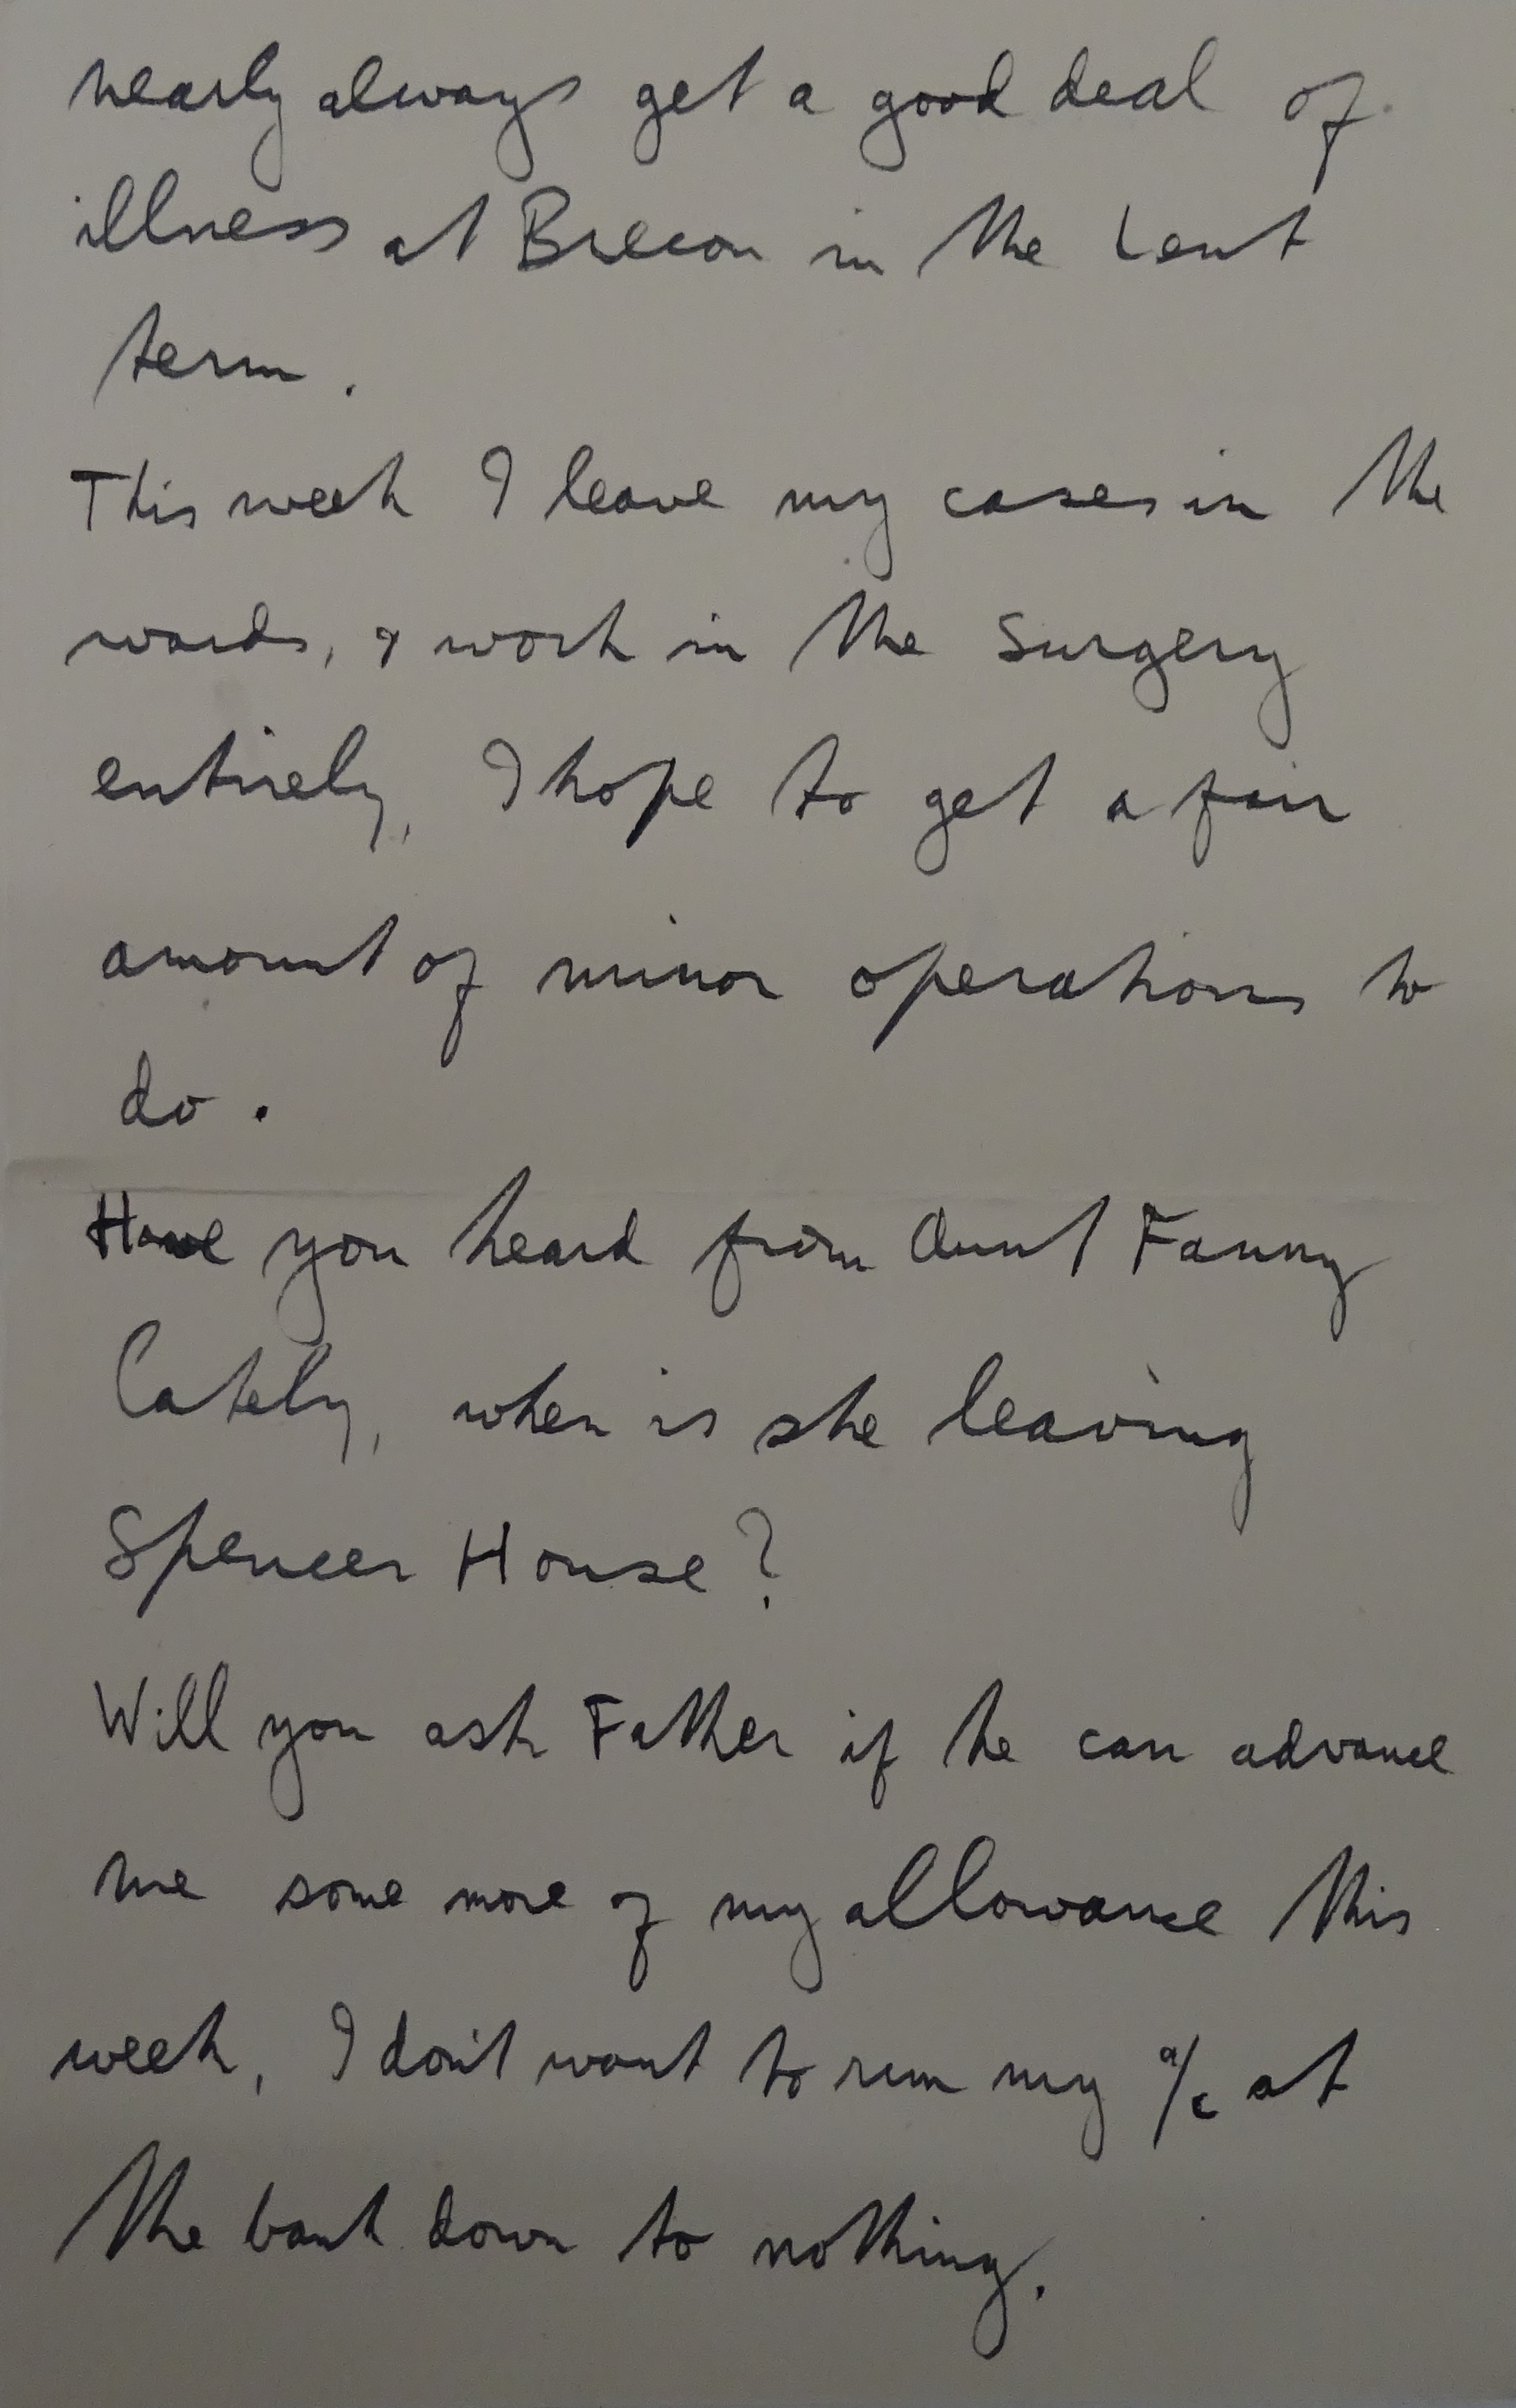 nearly always get a good deal of
illness at Brecon in the Lent
term.
This week I leave my cases in the
wards, & work in the Surgery
entirely, I hope to get a fair
amount of minor operations to
do.
Have you heard from Aunt Fanny
Lately, when is she leaving
Spencer House?
Will you ask Father if he can advance
me some more of my allowance this
week, I don't want to run my a/c at
the bank down to nothing.